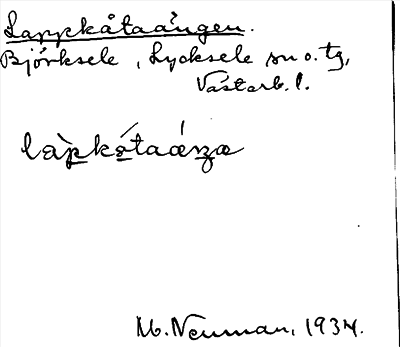 Lappkåtaängen.
Björksele, Lycksele sn o. tg,
Västerb. l.
làpkåtaáŋa
M. Neuman, 1934.